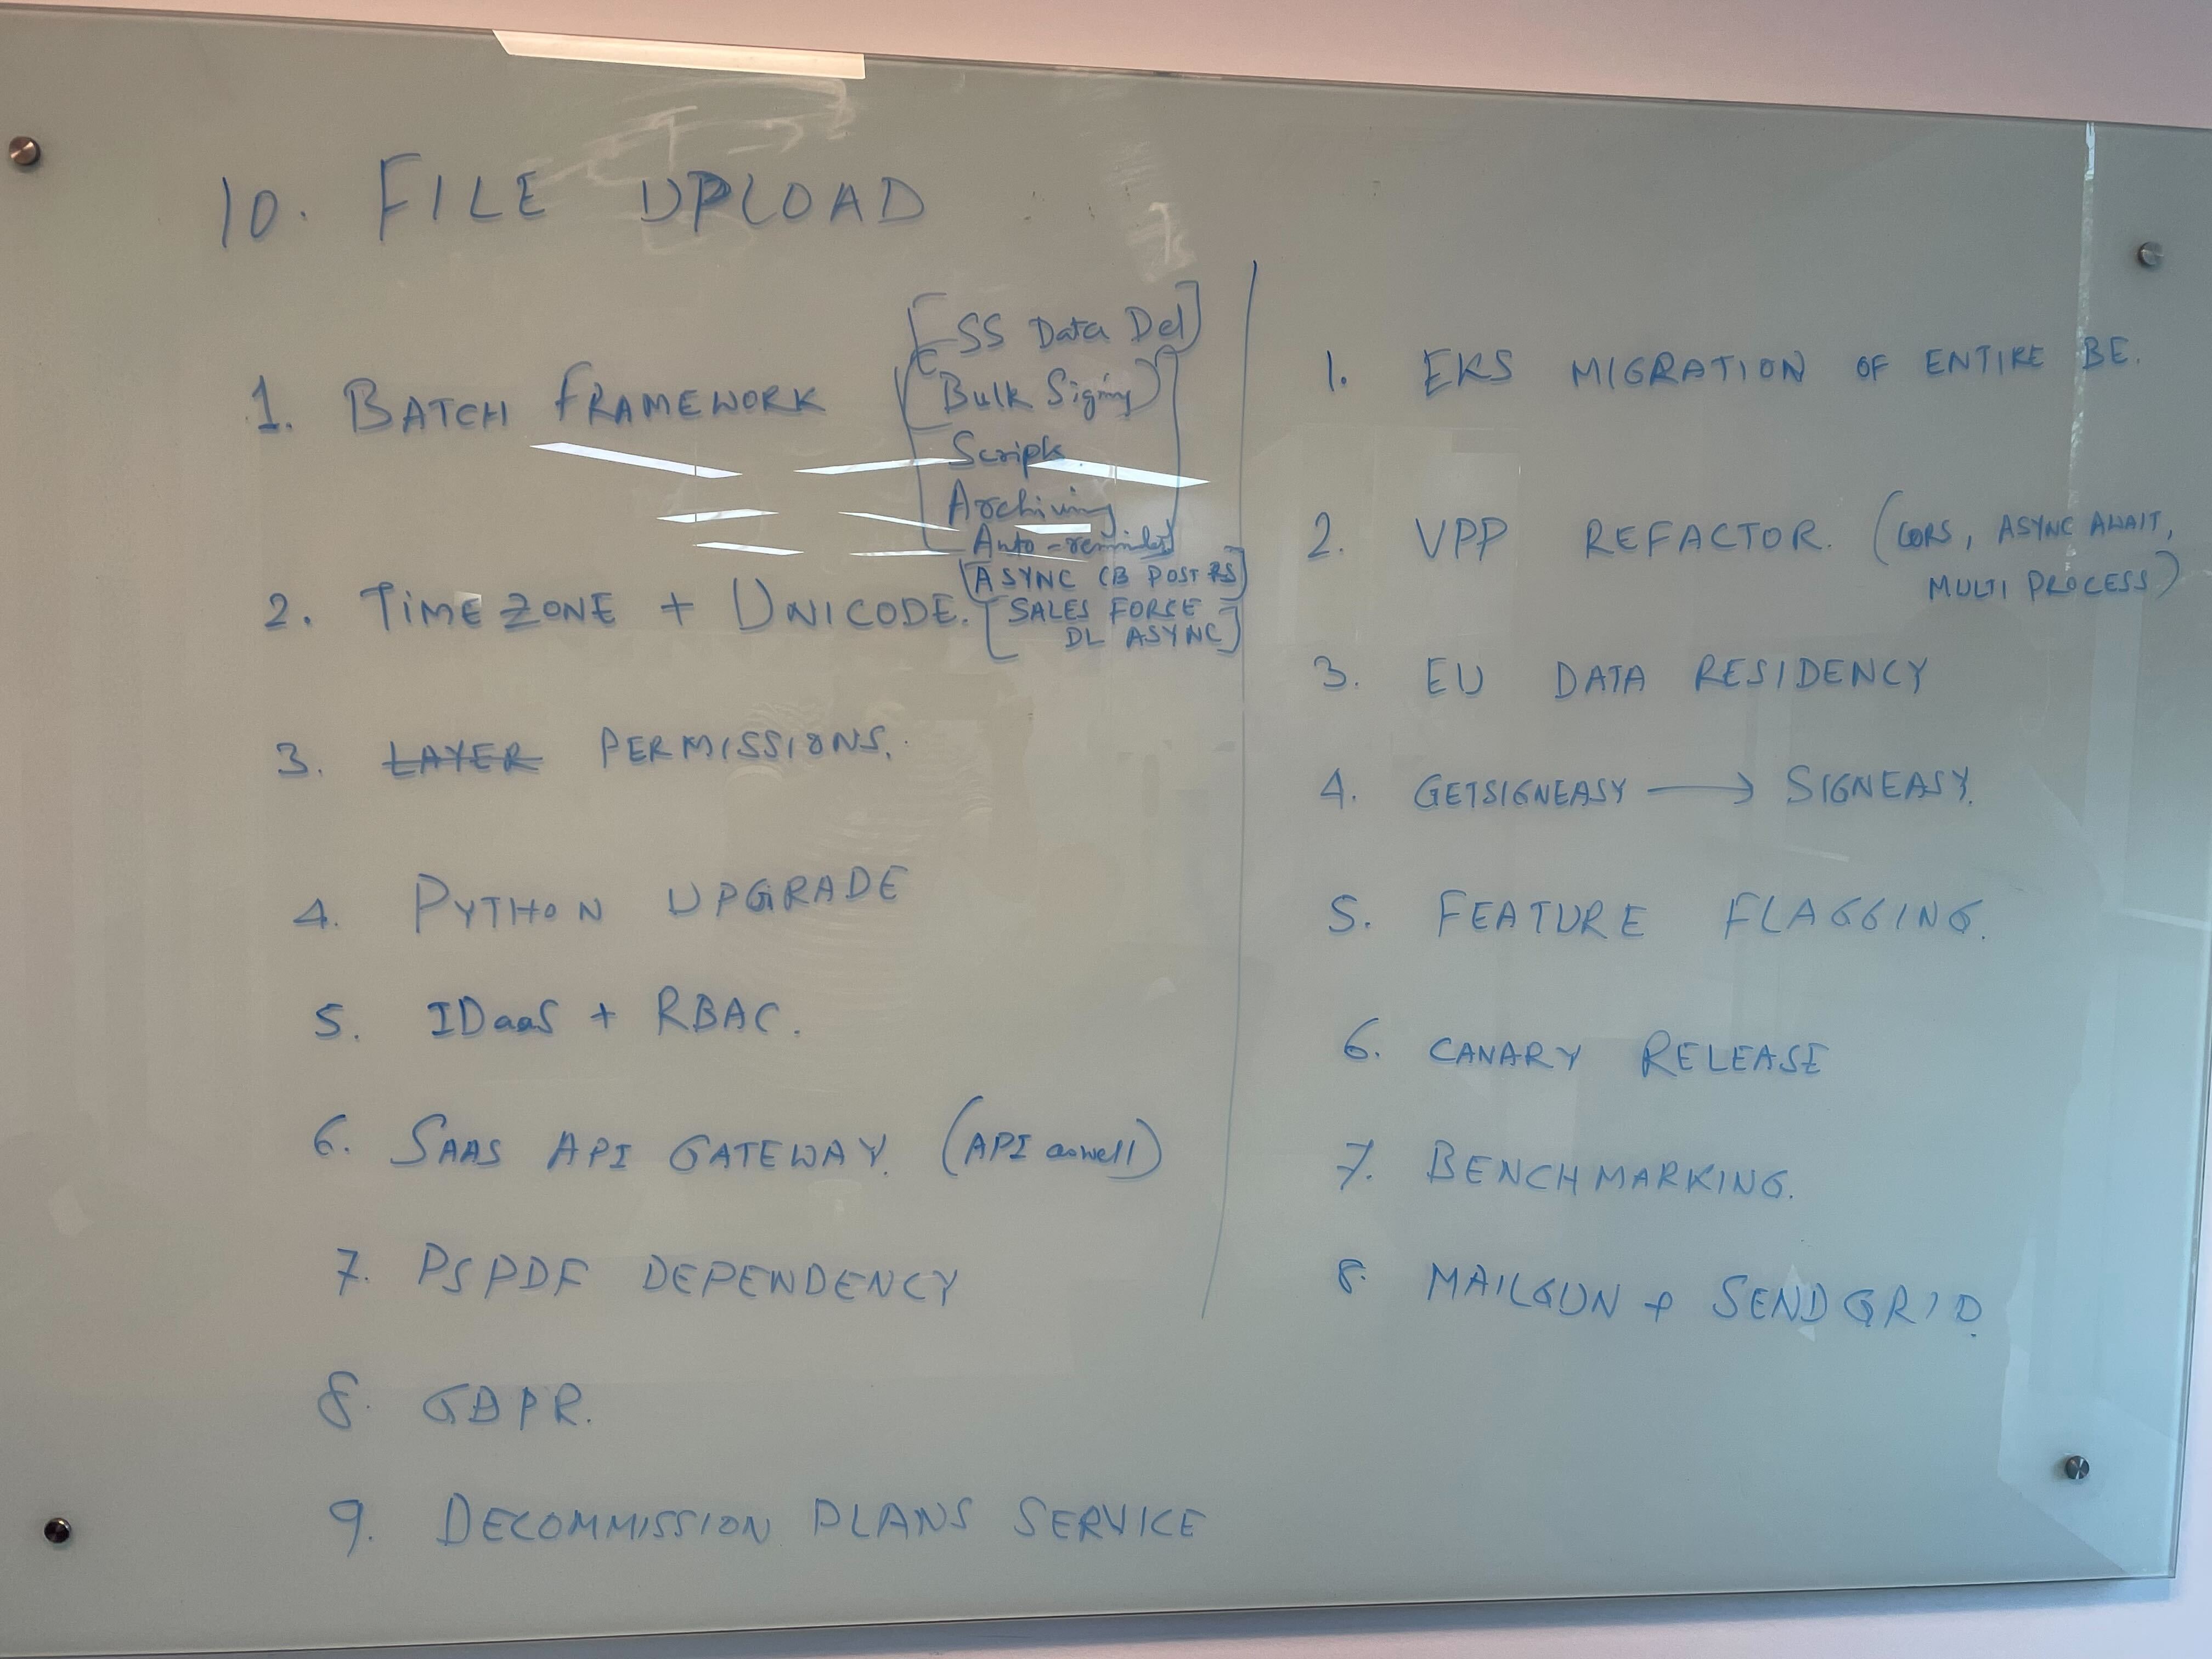 10. FILE UPLOAD
1. BATCH FRAMEWORK
[SS Data Del]
(Bulk Signing)
Scripts
Archiving
Auto-reminder
[ASYNC CB POST RS]
[SALES FORCE
DL ASYNC]
2. TIME ZONE + UNICODE.
3. LAYER PERMISSIONS.
4. PYTHON UPGRADE
5. IDaaS + RBAC.
6. SAAS API GATEWAY. (API aswell)
7. PSPDF DEPENDENCY
8. GDPR.
9. DECOMMISSION PLANS SERVICE
1. EKS MIGRATION OF ENTIRE BE.
2. VPP REFACTOR. (CORS, ASYNC AWAIT,
MULTI PROCESS)
3. EU DATA RESIDENCY
4. GETSIGNEASY → SIGNEASY.
5. FEATURE FLAGGING.
6. CANARY RELEASE
7. BENCHMARKING.
8. MAILGUN + SENDGRID.